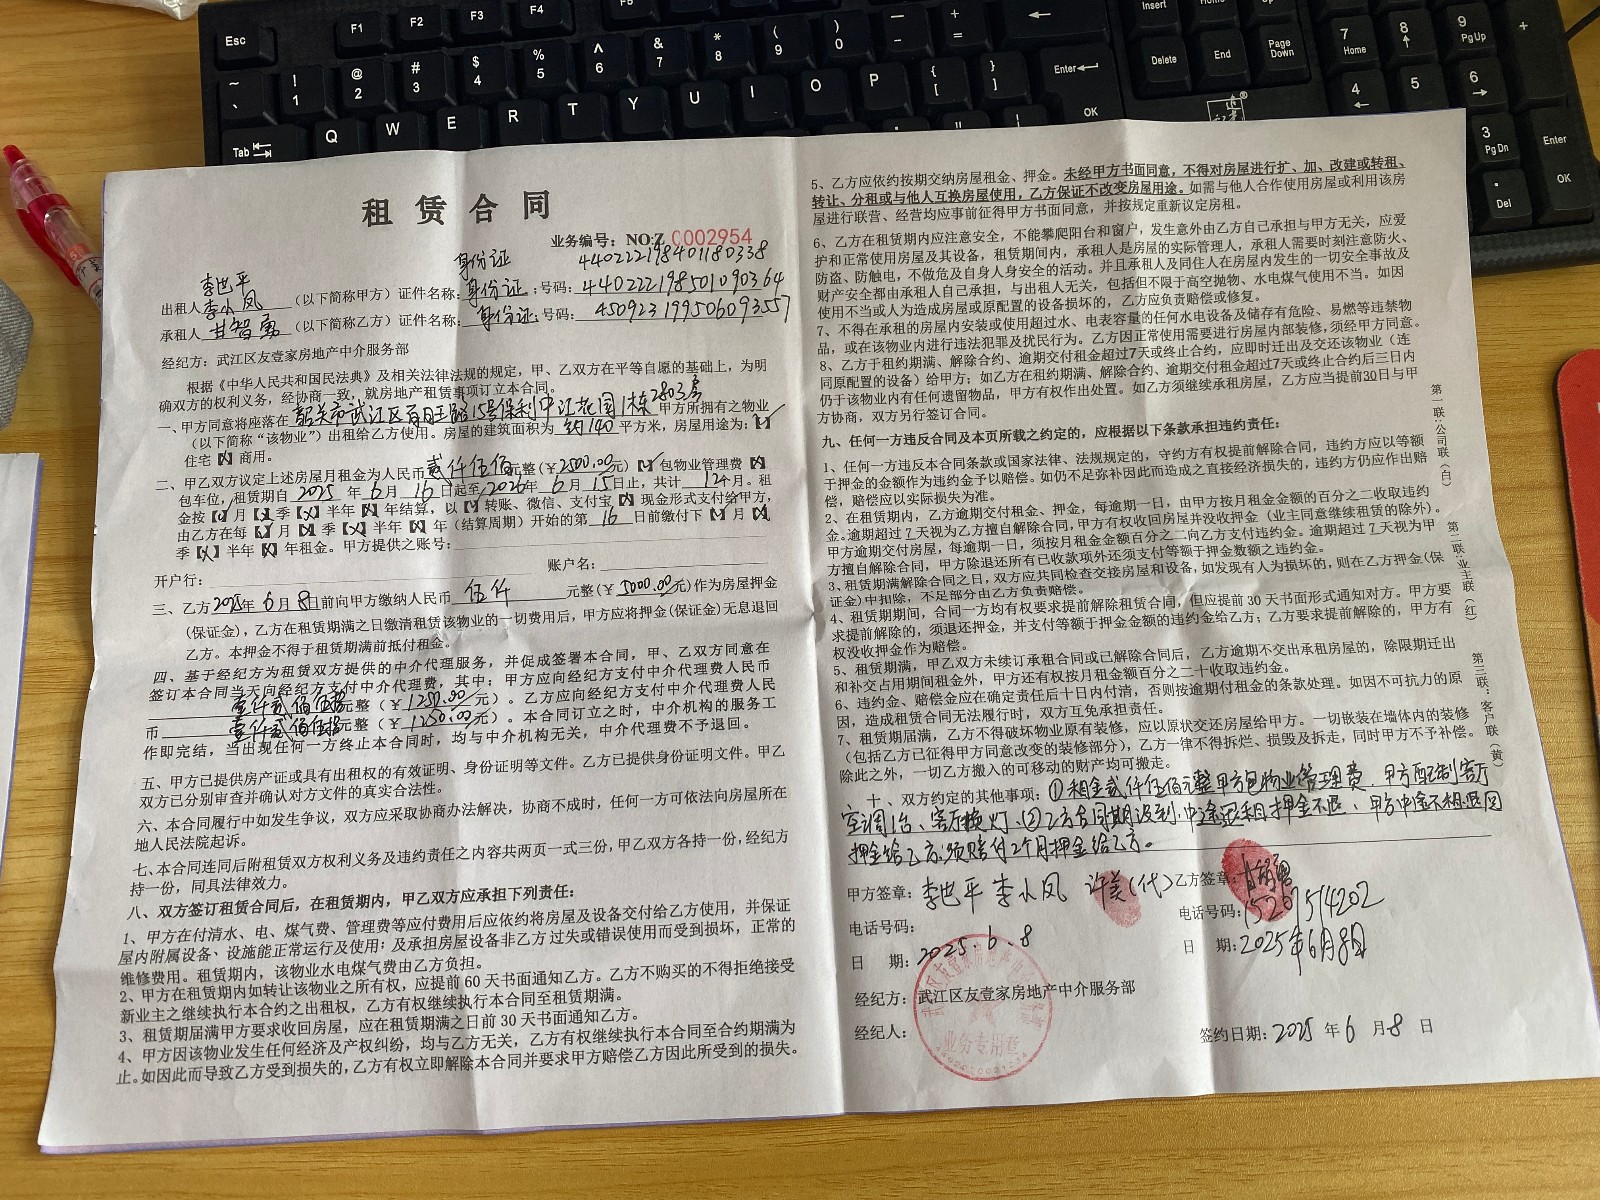 Esc
F1
F2
F3
F4
F5
Insert
Home
Delete
End
Page Down
Enter
OK
Tab
Q W E R T Y U I O P
7 Home
8
9 PgUp
4
5
6
3 PgDn
Enter
OK
Del
租赁合同
业务编号：NO:Z 0002954
身份证 440222198401180338
李世平
出租人李小凤（以下简称甲方）证件名称：身份证；号码：440222198501090364
承租人甘智勇（以下简称乙方）证件名称：身份证；号码：450923199506093557
经纪方：武江区友壹家房地产中介服务部
根据《中华人民共和国民法典》及相关法律法规的规定，甲、乙双方在平等自愿的基础上，为明
确双方的权利义务，经协商一致，就房地产租赁事项订立本合同。
2803房
一、甲方同意将座落在韶关市武江区百旺路15号保利中江花园1栋甲方所拥有之物业
（以下简称“该物业”）出租给乙方使用。房屋的建筑面积为约140平方米，房屋用途为：【✓】
住宅【X】商用。
二、甲乙双方议定上述房屋月租金为人民币贰仟伍佰元整（￥2500.00元）【✓】包物业管理费【X】
包车位，租赁期自2025年6月16日起至2026年6月15日止，共计12个月。租
金按【✓】月【X】季【X】半年【X】年结算，以【✓】转账、微信、支付宝【X】现金形式支付给甲方，
由乙方在每【✓】月【X】季【X】半年【X】年（结算周期）开始的第16日前缴付下【✓】月【X】
季【X】半年【X】年租金。甲方提供之账号：
开户行： 账户名：
三、乙方2025年6月8日前向甲方缴纳人民币伍仟元整（￥5000.00元）作为房屋押金
（保证金），乙方在租赁期满之日缴清租赁该物业的一切费用后，甲方应将押金（保证金）无息退回
乙方。本押金不得于租赁期满前抵付租金。
四、基于经纪方为租赁双方提供的中介代理服务，并促成签署本合同，甲、乙双方同意在
签订本合同当天向经纪方支付中介代理费，其中：甲方应向经纪方支付中介代理费人民币
壹仟贰佰伍拾元整（￥1250.00元）。乙方应向经纪方支付中介代理费人民
币壹仟贰佰伍拾元整（￥1250.00元）。本合同订立之时，中介机构的服务工
作即完结，当出现任何一方终止本合同时，均与中介机构无关，中介代理费不予退回。
五、甲方已提供房产证或具有出租权的有效证明、身份证明等文件。乙方已提供身份证明文件。甲乙
双方已分别审查并确认对方文件的真实合法性。
六、本合同履行中如发生争议，双方应采取协商办法解决，协商不成时，任何一方可依法向房屋所在
地人民法院起诉。
七、本合同连同后附租赁双方权利义务及违约责任之内容共两页一式三份，甲乙双方各持一份，经纪方
持一份，同具法律效力。
八、双方签订租赁合同后，在租赁期内，甲乙双方应承担下列责任：
1、甲方在付清水、电、煤气费、管理费等应付费用后应依约将房屋及设备交付给乙方使用，并保证
屋内附属设备、设施能正常运行及使用；及承担房屋设备非乙方过失或错误使用而受到损坏，正常的
维修费用。租赁期内，该物业水电煤气费由乙方负担。
2、甲方在租赁期内如转让该物业之所有权，应提前60天书面通知乙方。乙方不购买的不得拒绝接受
新业主之继续执行本合约之出租权，乙方有权继续执行本合同至租赁期满。
3、租赁期届满甲方要求收回房屋，应在租赁期满之日前30天书面通知乙方。
4、甲方因该物业发生任何经济及产权纠纷，均与乙方无关，乙方有权继续执行本合同至合约期满为
止。如因此而导致乙方受到损失的，乙方有权立即解除本合同并要求甲方赔偿乙方因此所受到的损失。
5、乙方应依约按期交纳房屋租金、押金。未经甲方书面同意，不得对房屋进行扩、加、改建或转租、
转让、分租或与他人互换房屋使用，乙方保证不改变房屋用途。如需与他人合作使用房屋或利用该房
屋进行联营、经营均应事前征得甲方书面同意，并按规定重新议定房租。
6、乙方在租赁期内应注意安全，不能攀爬阳台和窗户，发生意外由乙方自己承担与甲方无关，应爱
护和正常使用房屋及其设备，租赁期间内，承租人是房屋的实际管理人，承租人需要时刻注意防火、
防盗、防触电，不做危及自身人身安全的活动。并且承租人及同住人在房屋内发生的一切安全事故及
财产安全都由承租人自己承担，与出租人无关，包括但不限于高空抛物、水电煤气使用不当。如因
使用不当或人为造成房屋或原配置的设备损坏的，乙方应负责赔偿或修复。
7、不得在承租的房屋内安装或使用超过水、电表容量的任何水电设备及储存有危险、易燃等违禁物
品，或在该物业内进行违法犯罪及扰民行为。乙方因正常使用需要进行房屋内部装修，须经甲方同意。
8、乙方于租约期满、解除合约、逾期交付租金超过7天或终止合约，应即时迁出及交还该物业（连
同原配置的设备）给甲方；如乙方在租约期满、解除合约、逾期交付租金超过7天或终止合约后三日内
仍于该物业内有任何遗留物品，甲方有权作出处置。如乙方须继续承租房屋，乙方应当提前30日与甲
方协商，双方另行签订合同。
九、任何一方违反合同及本页所载之约定的，应根据以下条款承担违约责任：
1、任何一方违反本合同条款或国家法律、法规规定的，守约方有权提前解除合同，违约方应以等额
于押金的金额作为违约金予以赔偿。如仍不足弥补因此而造成之直接经济损失的，违约方仍应作出赔
偿，赔偿应以实际损失为准。
2、在租赁期内，乙方逾期交付租金、押金，每逾期一日，由甲方按月租金金额的百分之二收取违约
金。逾期超过7天视为乙方擅自解除合同，甲方有权收回房屋并没收押金（业主同意继续租赁的除外）。
甲方逾期交付房屋，每逾期一日，须按月租金金额百分之二向乙方支付违约金。逾期超过7天视为甲
方擅自解除合同，甲方除退还所有已收款项外还须支付等额于押金数额之违约金。
3、租赁期满解除合同之日，双方应共同检查交接房屋和设备，如发现有人为损坏的，则在乙方押金（保
证金）中扣除，不足部分由乙方负责赔偿。
4、租赁期期间，合同一方均有权要求提前解除租赁合同，但应提前30天书面形式通知对方。甲方要
求提前解除的，须退还押金，并支付等额于押金金额的违约金给乙方；乙方要求提前解除的，甲方有
权没收押金作为赔偿。
5、租赁期满，甲乙双方未续订承租合同或已解除合同后，乙方逾期不交出承租房屋的，除限期迁出
和补交占用期间租金外，甲方还有权按月租金额百分之二十收取违约金。
6、违约金、赔偿金应在确定责任后十日内付清，否则按逾期付租金的条款处理。如因不可抗力的原
因，造成租赁合同无法履行时，双方互免承担责任。
7、租赁期届满，乙方不得破坏物业原有装修，应以原状交还房屋给甲方。一切嵌装在墙体内的装修
（包括乙方已征得甲方同意改变的装修部分），乙方一律不得拆烂、损毁及拆走，同时甲方不予补偿。
除此之外，一切乙方搬入的可移动的财产均可搬走。
十、双方约定的其他事项：①租金贰仟伍佰元整甲方包物业管理费，甲方配制客厅
空调1台、客厅换灯。②乙方合同期没到，中途退租押金不退、甲方中途不租退回
押金给乙方，须赔付2个月押金给乙方。
甲方签章：李世平 李小凤 许美（代） 乙方签章：甘智勇
电话号码： 电话号码：15267514202
日 期：2025.6.8 日 期：2025年6月8日
经纪方：武江区友壹家房地产中介服务部
经纪人： 签约日期：2025年6月8日
业务专用章
第一联：公司联（白）
第二联：业主联（红）
第三联：客户联（黄）